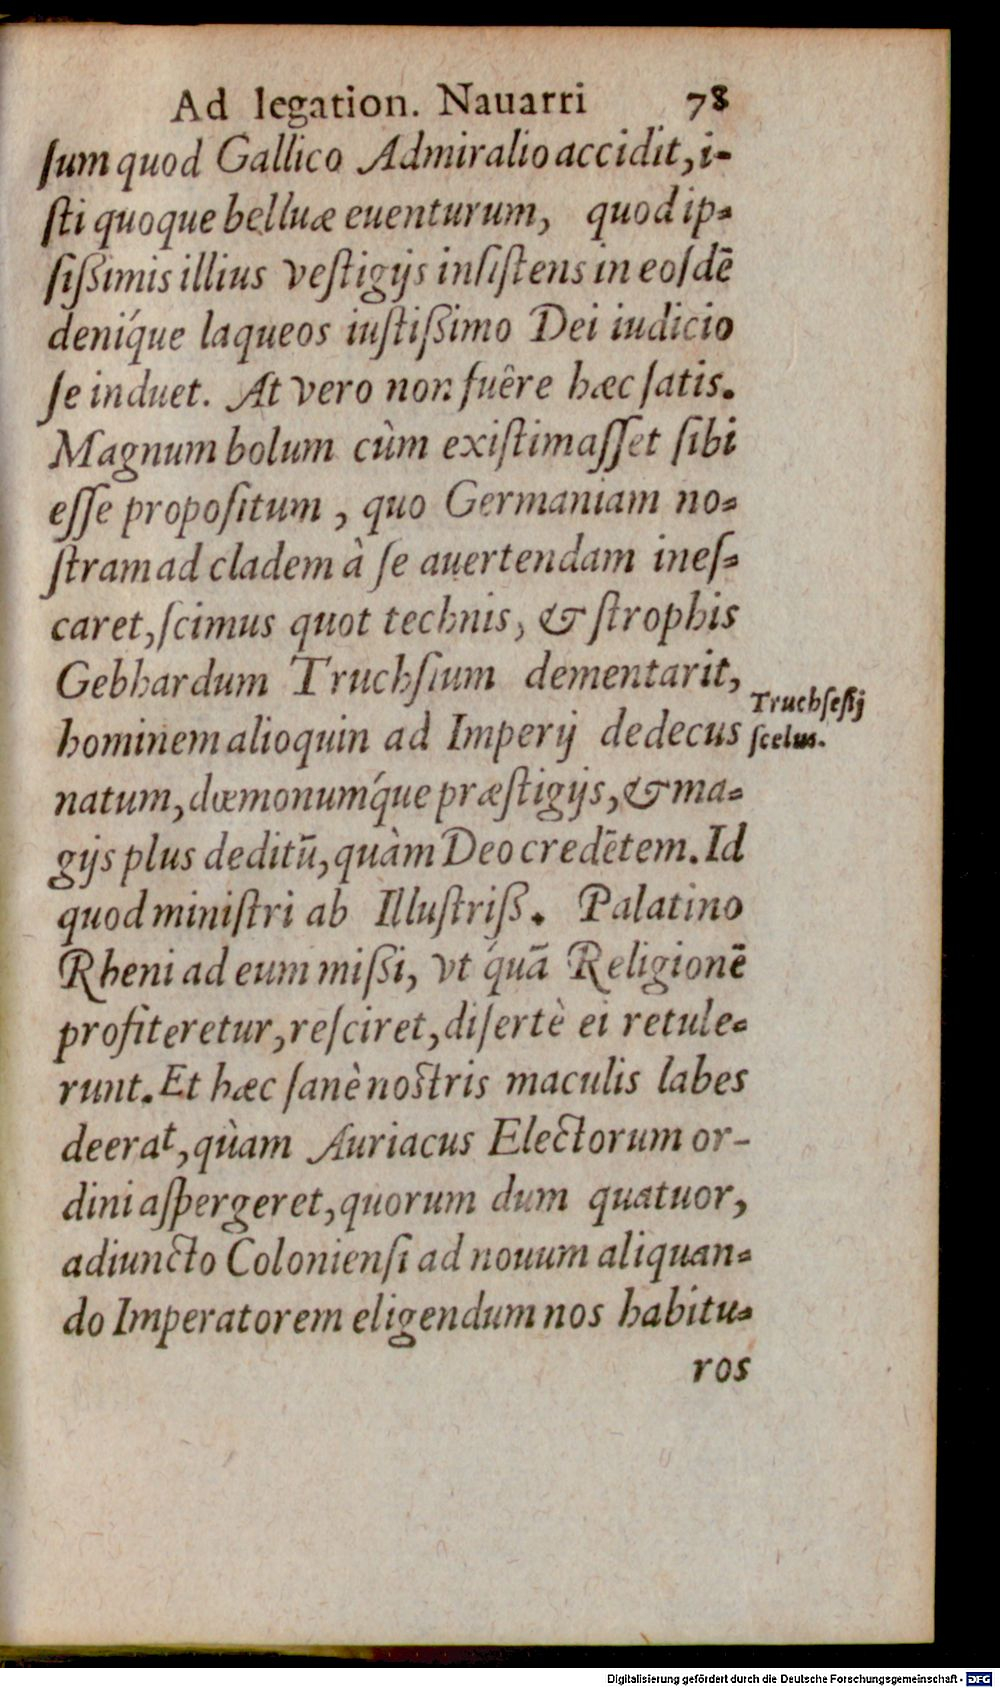 Ad legation. Nauarri 78
ſum quod Gallico Admiralio accidit, i-
ſti quoque belluæ euenturum, quod ip-
ſiſſimis illius veſtigijs inſiſtens in eoſdē
deniq́ue laqueos iuſtiſſimo Dei iudicio
ſe induet. At vero non fuêre hæc ſatis.
Magnum bolum cùm exiſtimaſſet ſibi
eſſe propoſitum, quo Germaniam no-
ſtram ad cladem à ſe auertendam ineſ-
caret, ſcimus quot technis, & ſtrophis
Gebhardum Truchſium dementarit,
Truchſeſij
hominem alioquin ad Imperij dedecus
ſcelus.
natum, dœmonumq́ue præſtigijs, & ma-
gijs plus deditū, quàm Deo credētem. Id
quod miniſtri ab Illuſtriß. Palatino
Rheni ad eum mißi, vt q́uā Religionē
profiteretur, reſciret, diſertè ei retule-
runt. Et hæc ſanè noſtris maculis labes
deerat, qùam Auriacus Electorum or-
dini aſpergeret, quorum dum quatuor,
adiuncto Colonienſi ad nouum aliquan-
do Imperatorem eligendum nos habitu-
ros
Digitalisierung gefördert durch die Deutsche Forschungsgemeinschaft - DFG